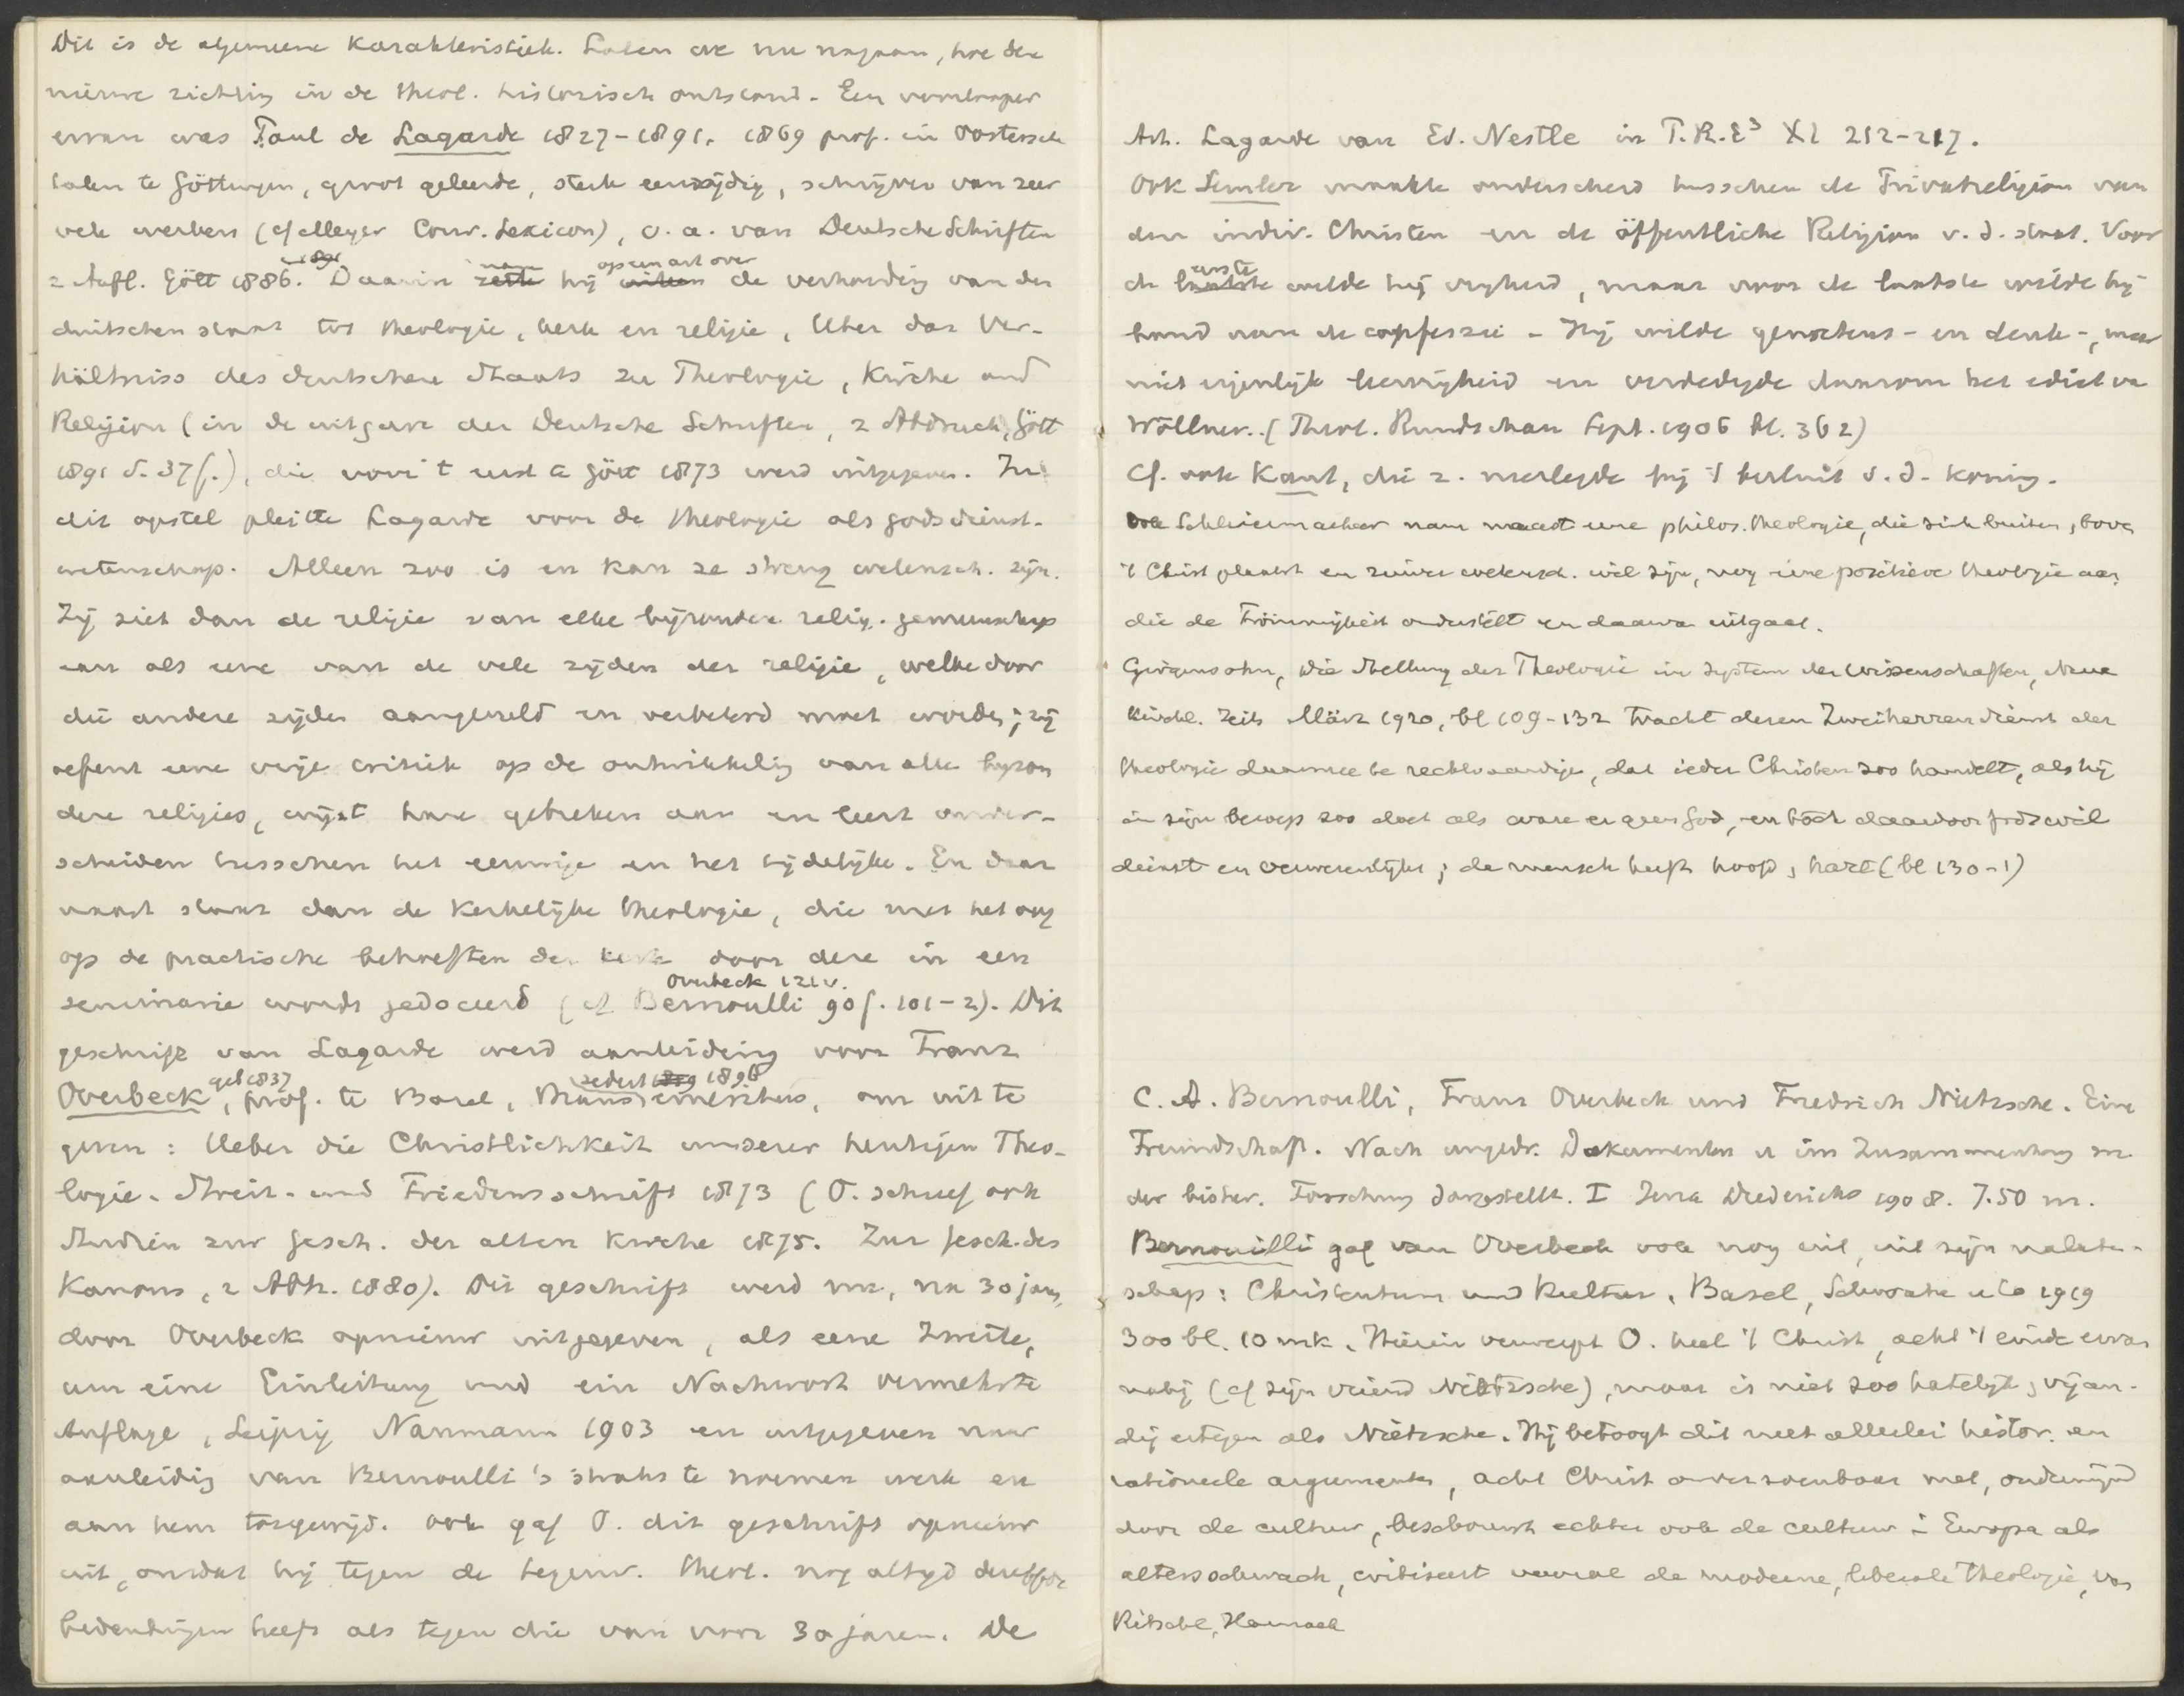 Dit is de algemeene karakteristiek. Laten we nu nagaan, hoe deze
nieuwe richting in de theol. historisch ontstond. Een voorlooper
ervan was Paul de Lagarde 1827-1891, 1869 prof. in Oostersche
talen te Göttingen, groot geleerde, sterk eenzijdig, schrijver van zeer
vele werken (cf Meyer Conv. Lexicon), o.a. van Deutsche Schriften
2 Aufl. Gött 1886. Daarin nam hij op een art over de verhouding van den
duitschen staat tot theologie, kerk en religie, Uber das Ver-
hältniss des deutschen Staats zu Theologie, Kirche und
Religion (in de uitgave der Deutsche Schriften, 2 Abdruck, Gött
1891 S. 37 f.), die voor 't eerst te Gött 1873 werd uitgegeven. In
dit opstel pleitte Lagarde voor de theologie als godsdienst-
wetenschap. Alleen zoo is en kan ze streng wetensch. zijn.
Zij ziet dan de religie van elke bijzondere relig. gemeenschap
aan als eene van de vele zijden der religie, welke door
die andere zijden aangevuld en verbeterd moet worden; zij
oefent eene vrije critiek op de ontwikkeling van alle bijzon
dere religies, wijst hare gebreken aan en leert onder-
scheiden tusschen het eeuwige en het tijdelijke. En daar
naast staat dan de kerkelijke theologie, die met het oog
op de practische behoeften der kerk door deze in een
seminarie wordt gedoceerd (cf Bernoulli 90 f. 101-2). Dit
Overbeck 121 v.
geschrift van Lagarde werd aanleiding voor Franz
Overbeck, geb 1837, prof. te Basel, thans sedert 1896 emeritus, om uit te
geven: Ueber die Christlichkeit unserer heutigen Theo-
logie. Streit- und Friedensschrift 1873 (O. schreef ook
Studien zur Gesch. der alten Kirche 1875. Zur Gesch. des
Kanons, 2 Abh. 1880). Dit geschrift werd nu, na 30 jaar,
door Overbeck opnieuw uitgegeven, als eene Zweite,
um eine Einleitung und ein Nachwort vermehrte
Auflage, Leipzig Naumann 1903 en uitgegeven naar
aanleiding van Bernoulli's straks te noemen werk en
aan hem toegewijd. Ook gaf O. dit geschrift opnieuw
uit, omdat hij tegen de tegenw. theol. nog altijd dezelfde
bedenkingen heeft als tegen die van voor 30 jaren. De
Art. Lagarde van Ed. Nestle in P.R.E³ XI 212-217.
Ook Semler maakte onderscheid tusschen de Privatreligion van
den indiv. Christen en de öffentliche Religion v. d. staat. Voor
de eerste wilde hij vrijheid, maar voor de laatste wilde hij
band aan de confessie. Hij wilde gewetens- en denk-, maar
niet eigenlijke leervrijheid en verdedigde daarom het edict v
Wöllner. (Theol. Rundschau Sept. 1906 bl. 362)
Cf. ook Kant, die z. neerlegde bij 't besluit v. d. koning.
Ook Schleiermacher nam naast eene philos. theologie, die zich buiten, boven
't Christ plaatst en zuiver wetensch. wil zijn, nog eene positieve theologie aan
die de Frömmigkeit onderstelt en daarvan uitgaat.
Girgensohn, Die Stellung der Theologie im System der Wissenschaften, Neue
kirchl. Zeits März 1920, bl 109-132 tracht dezen Zweiherrendienst der
theologie daarmee te rechtvaardigen, dat ieder Christen zoo handelt, als hij
in zijn beroep zoo doet als ware er geen God, en tòch daardoor Gods wil
dient en verwerkelijkt; de mensch heeft hoofd, hart (bl 130-1)
C. A. Bernoulli, Franz Overbeck und Friedrich Nietzsche. Eine
Freundschaft. Nach ungedr. Dokumenten u im Zusammenhang m
der bisher. Forschung dargestellt. I Jena Diederichs 1908. 7.50 m.
Bernouilli gaf van Overbeck ook nog uit, uit zijn nalaten-
schap: Christentum und Kultur, Basel, Schwabe u Co 1919
300 bl. 10 mk. Hierin verwerpt O. heel 't Christ, acht 't einde ervan
nabij (cf zijn vriend Nietzsche), maar is niet zoo hatelijk, vijan-
dig ertegen als Nietzsche. Hij betoogt dit met allerlei histor. en
rationeele argumenten, acht Christ onverzoenbaar met, ondermijnd
door de cultuur, beschouwt echter ook de cultuur i Europa als
altersschwach, critiseert vooral de moderne, liberale theologie, van
Ritschl, Harnack